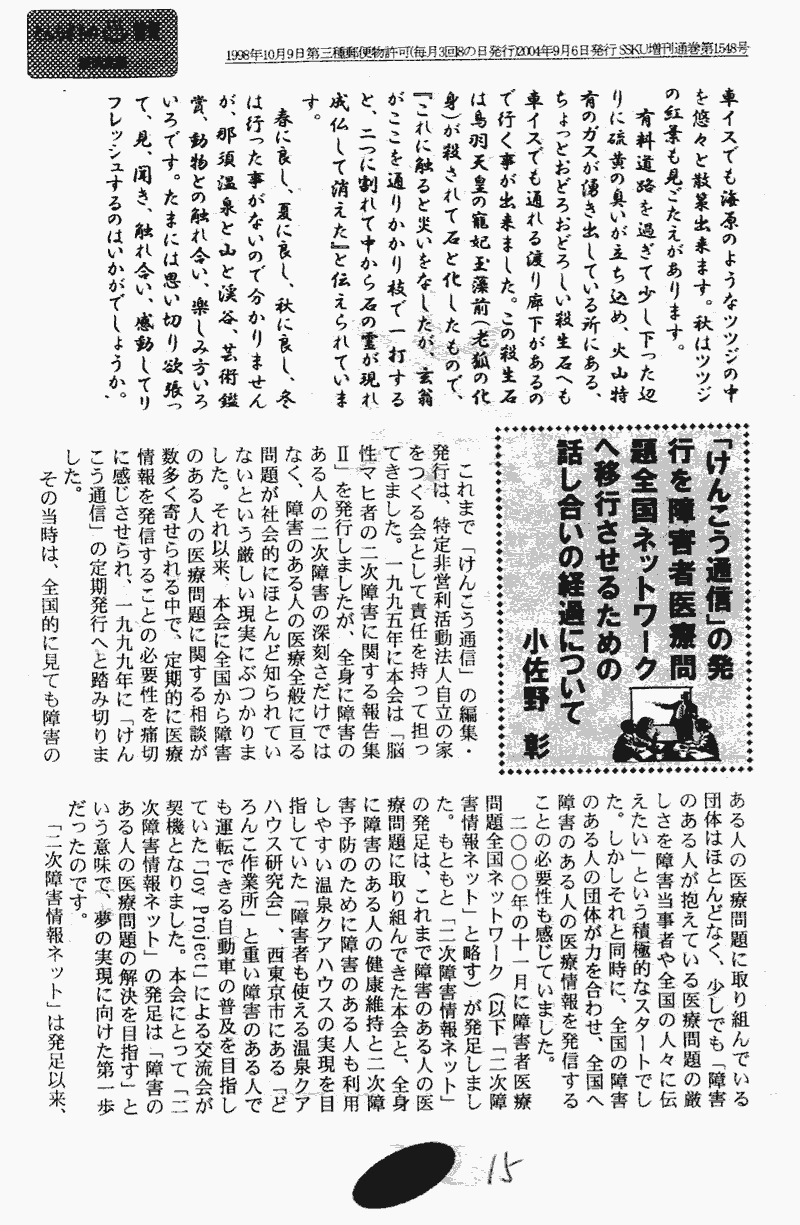 1998年10月9日第三種郵便物許可(毎月3回8の日発行)2004年9月6日発行 SSKU増刊通巻第1548号
車イスでも海原のようなツツジの中
を悠々と散策出来ます。秋はツツジ
の紅葉も見ごたえがあります。
有料道路を過ぎて少し下った辺
りに硫黄の臭いが立ち込め、火山特
有のガスが湧き出している所にある、
ちょっとおどろおどろしい殺生石へも
車イスでも通れる渡り廊下があるの
で行く事が出来ました。この殺生石
は鳥羽天皇の寵妃玉藻前(老狐の化
身)が殺されて石と化したもので、
『これに触ると災いをなしたが、玄翁
がここを通りかかり杖で一打する
と、二つに割れて中から石の霊が現れ
成仏して消えた』と伝えられていま
す。
春に良し、夏に良し、秋に良し、冬
は行った事がないので分かりません
が、那須温泉と山と渓谷、芸術鑑
賞、動物との触れ合い、楽しみ方いろ
いろです。たまには思い切り欲張っ
て、見、聞き、触れ合い、感動してリ
フレッシュするのはいかがでしょうか。
「けんこう通信」の発
行を障害者医療問
題全国ネットワーク
へ移行させるための
話し合いの経過について
小佐野 彰
これまで「けんこう通信」の編集・
発行は、特定非営利活動法人自立の家
をつくる会として責任を持って担っ
てきました。一九九五年に本会は「脳
性マヒ者の二次障害に関する報告集
Ⅱ」を発行しましたが、全身に障害の
ある人の二次障害の深刻さだけでは
なく、障害のある人の医療全般に亘る
問題が社会的にほとんど知られてい
ないという厳しい現実にぶつかりま
した。それ以来、本会に全国から障害
のある人の医療問題に関する相談が
数多く寄せられる中で、定期的に医療
情報を発信することの必要性を痛切
に感じさせられ、一九九九年に「けん
こう通信」の定期発行へと踏み切りま
した。
その当時は、全国的に見ても障害の
ある人の医療問題に取り組んでいる
団体はほとんどなく、少しでも「障害
のある人が抱えている医療問題の厳
しさを障害当事者や全国の人々に伝
えたい」という積極的なスタートでし
た。しかしそれと同時に、全国の障害
のある人の団体が力を合わせ、全国へ
障害のある人の医療情報を発信する
ことの必要性も感じていました。
二〇〇〇年の十一月に障害者医療
問題全国ネットワーク(以下「二次障
害情報ネット」と略す)が発足しまし
た。もともと「二次障害情報ネット」
の発足は、これまで障害のある人の医
療問題に取り組んできた本会と、全身
に障害のある人の健康維持と二次障
害予防のために障害のある人も利用
しやすい温泉クアハウスの実現を目
指していた「障害者も使える温泉クア
ハウス研究会」、西東京市にある「ど
ろんこ作業所」と重い障害のある人で
も運転できる自動車の普及を目指し
ていた「Joy Project」による交流会が
契機となりました。本会にとって「二
次障害情報ネット」の発足は「障害の
ある人の医療問題の解決を目指す」と
いう意味で、夢の実現に向けた第一歩
だったのです。
「二次障害情報ネット」は発足以来、
15